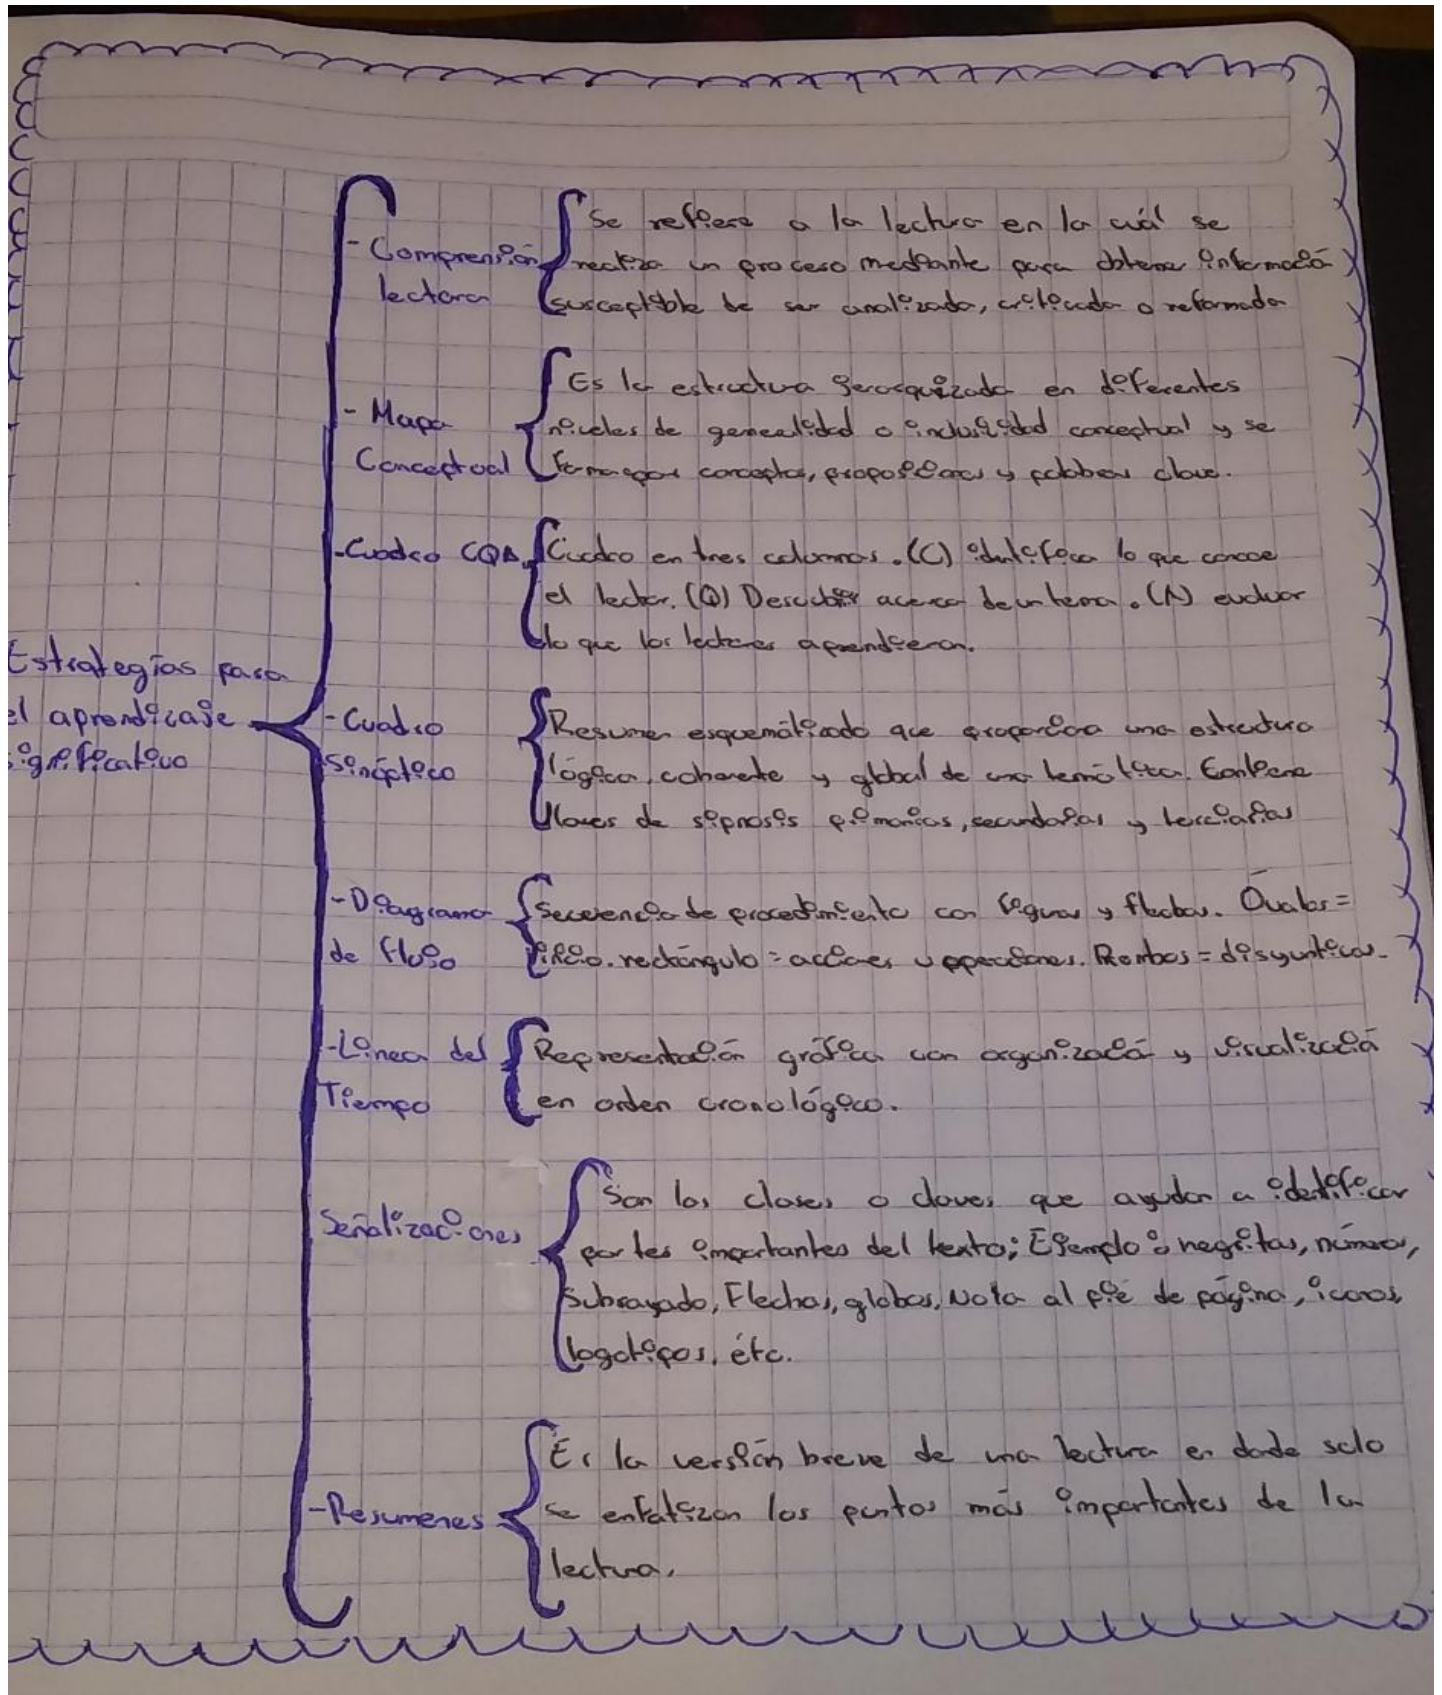 Estrategias para
el aprendizaje
significativo
- Comprensión
lectora
Se refiere a la lectura en la cuál se
realiza un proceso mediante para obtener informació
susceptible de ser analizada, criticada o reformada
- Mapa
Conceptual
Es la estructura jerarquizada en diferentes
niveles de generalidad o inclusividad conceptual y se
forma por conceptos, proposiciones y palabras clave.
-Cuadro CQA
Cuadro en tres columnas. (C) identifica lo que conoce
el lector. (Q) Descubrir acerca de un tema. (A) evaluar
lo que los lectores aprendieron.
-Cuadro
sinóptico
Resumen esquemátizado que proporciona una estructura
lógica, coherente y global de una temática. Contiene
llaves de sipnosis primarias, secundarias y terciarias
-Diagrama
de flujo
Secuencia de procedimiento con figuras y flechas. Óvalos =
inicio. rectángulo = acciones u operaciones. Rombos = disyuntivas.
-Línea del
Tiempo
Representación gráfica con organizació y visualizació
en orden cronológico.
Señalizaciones
Son las clases o claves que ayudan a identificar
partes importantes del texto; Ejemplo: negritas, números,
Subrayado, Flechas, globos, Nota al pié de página, iconos,
logotipos, étc.
-Resumenes
Es la versión breve de una lectura en donde solo
se enfatizan los puntos más importantes de la
lectura.